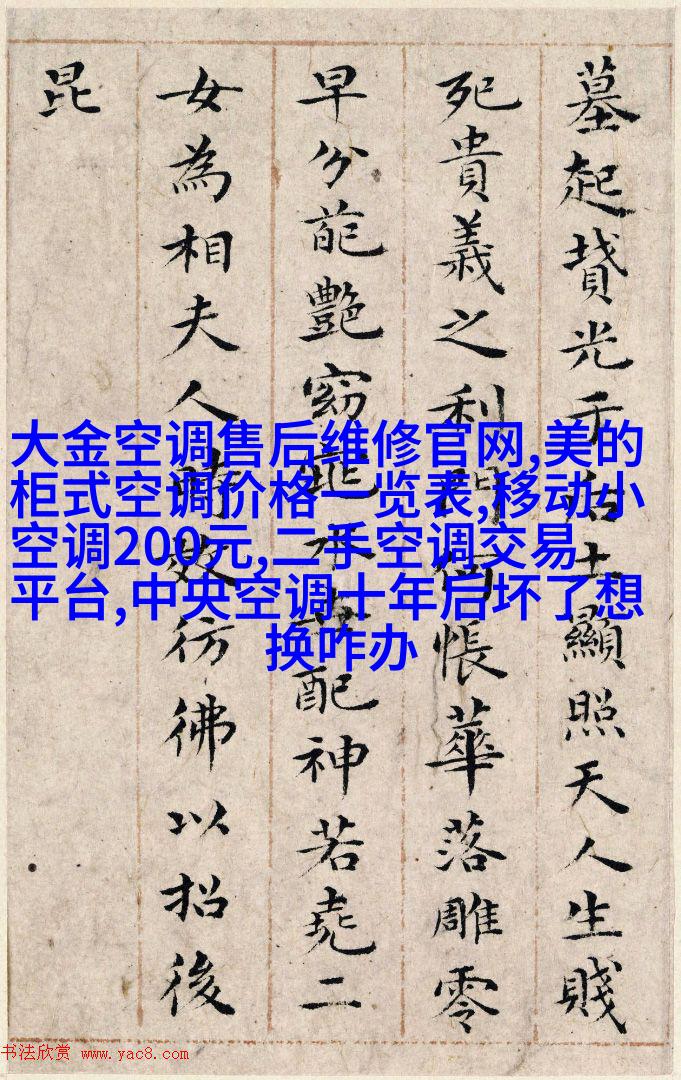 墓起墳光于后土顯照天人生賤
死貴義之利門何悵華落雕零
早分葩豔窈窕永世配神若堯二
女為相夫人時效彷彿以招後
昆
大金空调售后维修官网,美的
柜式空调价格一览表,移动小
空调200元,二手空调交易
平台,中央空调十年后坏了想
换咋办
书法欣赏 www.yac8.com